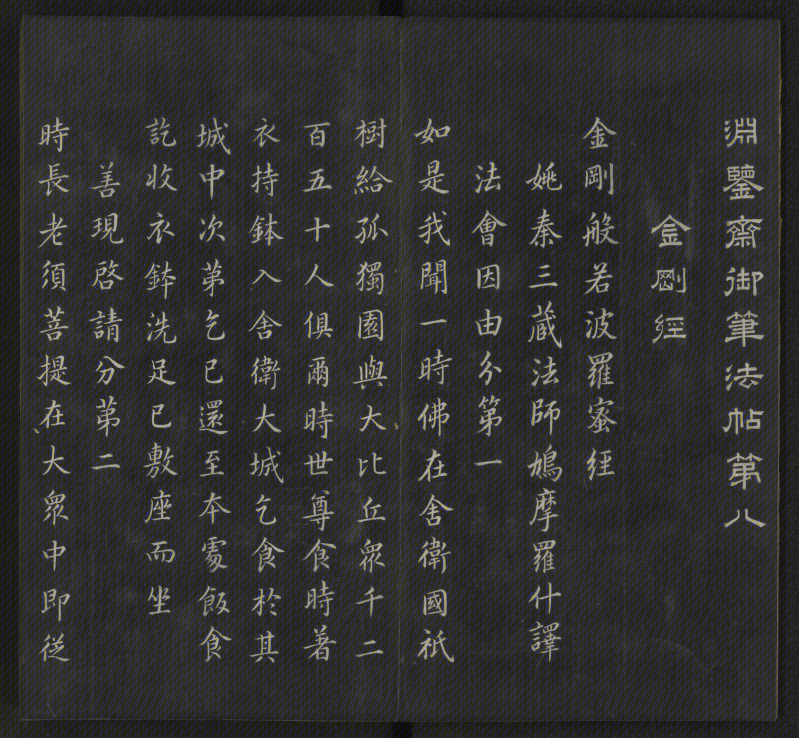 淵鑒齋御筆法帖第八
金剛經
金剛般若波羅蜜經
姚秦三藏法師鳩摩羅什譯
法會因由分第一
如是我聞一時佛在舍衛國祇
樹給孤獨園與大比丘眾千二
百五十人俱爾時世尊食時著
衣持鉢入舍衛大城乞食於其
城中次第乞已還至本處飯食
訖收衣鉢洗足已敷座而坐
善現啓請分第二
時長老須菩提在大眾中即從